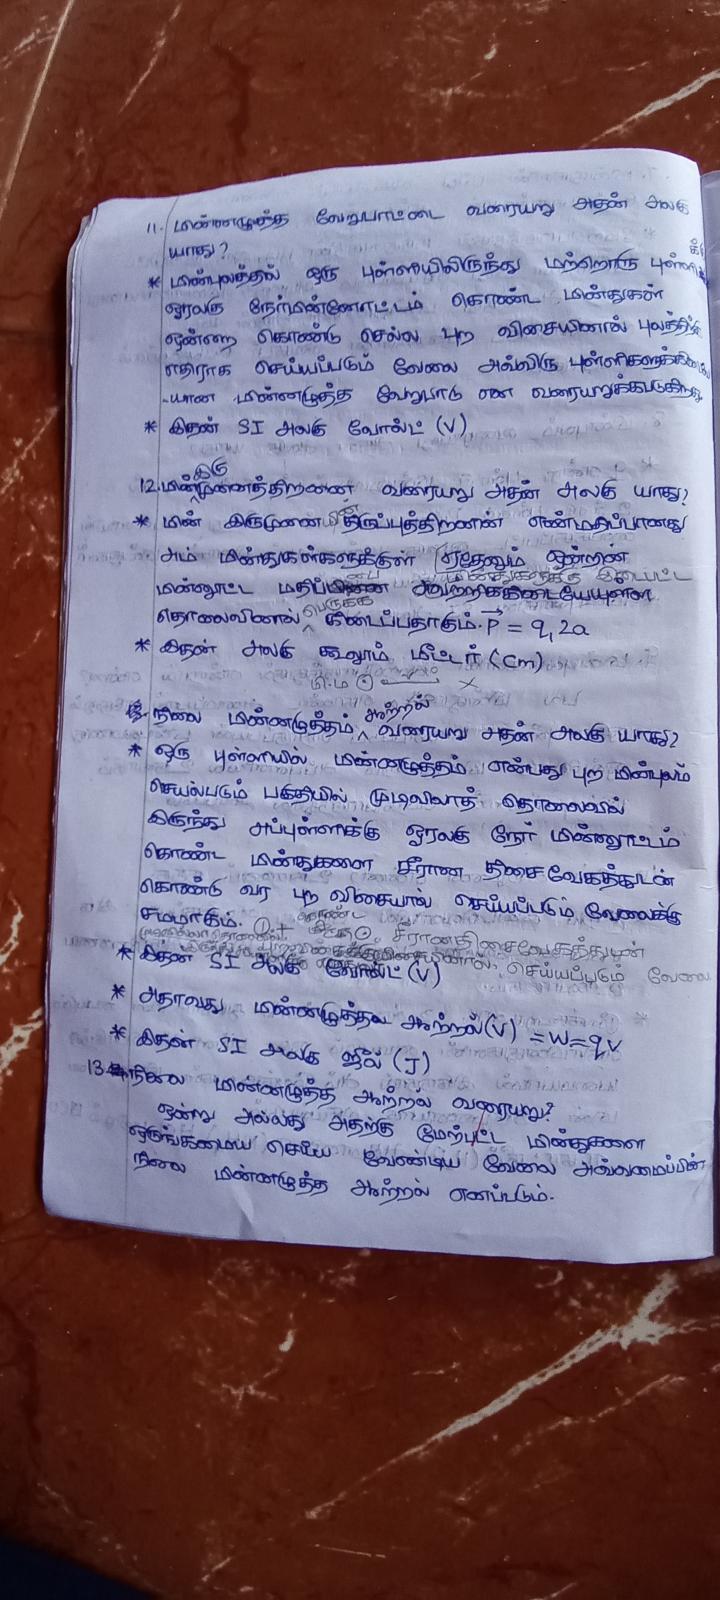 11. மின்னழுத்த வேறுபாட்டை வரையறு அதன் அலகு
யாது?
* மின்புலத்தில் ஒரு புள்ளியிலிருந்து மற்றொரு புள்ளிக்கு
ஓரலகு நேர்மின்னோட்டம் கொண்ட மின்துகள்
ஒன்றை கொண்டு செல்ல புற விசையினால் புலத்திற்கு
எதிராக செய்யப்படும் வேலை அவ்விரு புள்ளிகளுக்கிடை
-யான மின்னழுத்த வேறுபாடு என வரையறுக்கப்படுகிறது.
* இதன் SI அலகு வோல்ட் (V)
இரு
12. மின்முனைத்திறனை வரையறு அதன் அலகு யாது?
* மின் இருமுனையின் திருப்புத்திறனின் எண்மதிப்பானது
அம் மின்துகள்களுக்குள் ஏதேனும் ஒன்றின்
மின்னூட்ட மதிப்பினை அவற்றிக்கிடையேயுள்ள
தொலைவினால் பெருக்க கிடைப்பதாகும். P = q, 2a
* இதன் அலகு கூலூம் மீட்டர் (Cm)
மி.ம
நிலை மின்னழுத்தம் ஆற்றல் வரையறு அதன் அலகு யாது?
* ஒரு புள்ளியில் மின்னழுத்தம் என்பது புற மின்புலம்
செயல்படும் பகுதியில் முடிவிலாத் தொலைவில்
இருந்து அப்புள்ளிக்கு ஓரலகு நேர் மின்னூட்டம்
கொண்ட மின்துகளை சீரான திசைவேகத்துடன்
கொண்டு வர புற விசையால் செய்யப்படும் வேலைக்கு
சமமாகும். கொண்ட சீரான திசைவேகத்துடன்
செய்யப்படும் வேலை
* இதன் SI அலகு வோல்ட் (V)
* அதாவது மின்னழுத்தல ஆற்றல்(V) = W = qv
* இதன் SI அலகு ஜூல் (J)
13 நிலை மின்னழுத்த ஆற்றல் வரையறு?
ஒன்று அல்லது அதற்கு மேற்பட்ட மின்துகளை
ஒருங்கமைய செய்ய வேண்டிய வேலை அவ்வமைப்பின்
நிலை மின்னழுத்த ஆற்றல் எனப்படும்.